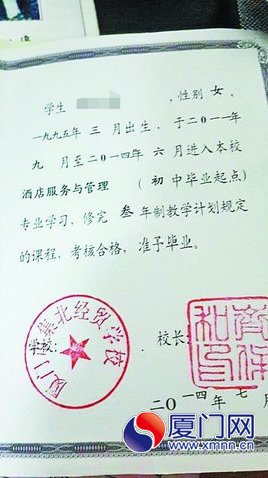 学生 ,性别 女,
一九九五年 三 月出生,于二0一一年
九 月至二0一四年 六 月进入本校
酒店服务与管理 (初中毕业起点)
专业学习,修完 叁 年制教学计划规定
的课程,考核合格,准予毕业。
学校: 校长:
厦门集北经贸学校
二0一四年 七 月
厦门网
www.xmnn.cn